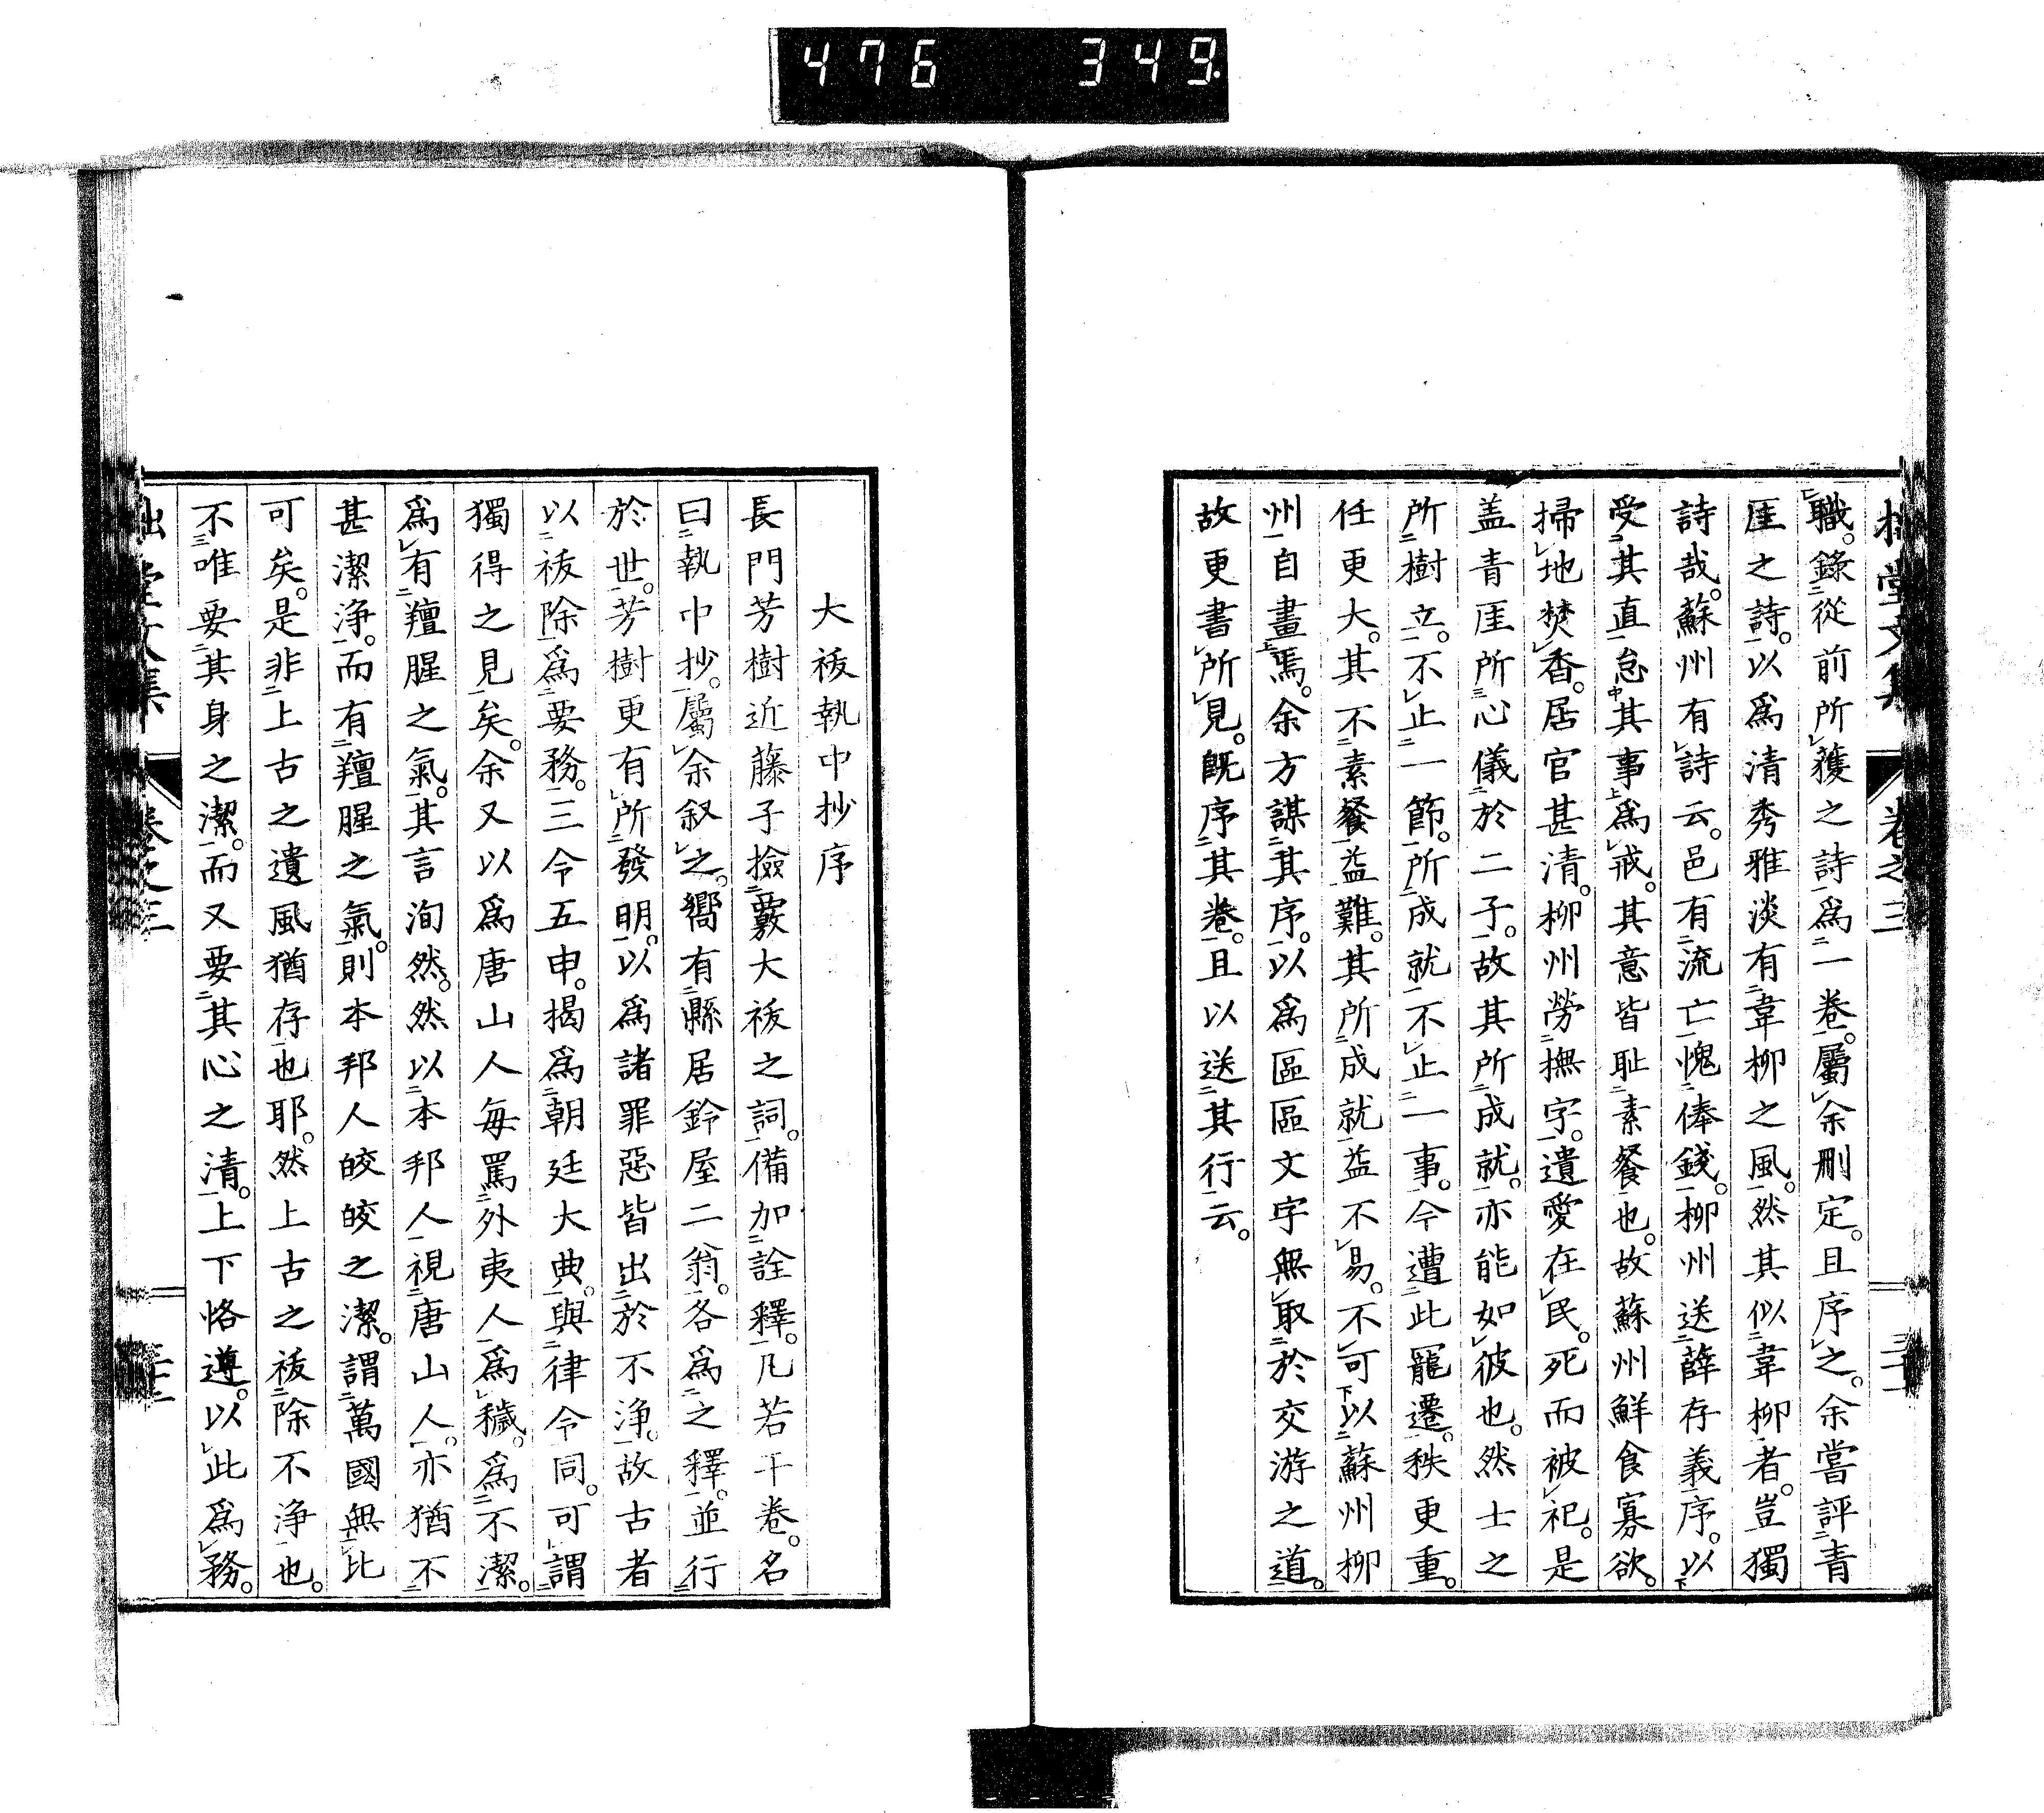 476 349.
職。錄從前所獲之詩爲一卷。屬余刪定。且序之。余嘗評青
厓之詩。以爲清秀雅淡有韋柳之風。然其似韋柳者。豈獨
詩哉。蘇州有詩云。邑有流亡愧俸錢。柳州送薛存義序。以
受其直怠其事爲戒。其意皆耻素餐也。故蘇州鮮食寡欲。
掃地焚香。居官甚清。柳州勞撫字。遺愛在民。死而被祀。是
盖青厓所心儀於二子。故其所成就。亦能如彼也。然士之
所樹立。不止一節。所成就不止一事。今遭此寵遷。秩更重。
任更大。其不素餐益難。其所成就益不易。不可以蘇州柳
州自畫焉。余方謀其序。以爲區區文字無取於交游之道。
故更書所見。既序其卷。且以送其行云。
大祓執中抄序
長門芳樹近藤子撿覈大祓之詞。備加詮釋。凡若干卷。名
曰執中抄。屬余叙之。嚮有縣居鈴屋二翁。各爲之釋。並行
於世。芳樹更有所發明。以爲諸罪惡皆出於不浄。故古者
以祓除爲要務。三令五申。揭爲朝廷大典。與律令同。可謂
獨得之見矣。余又以爲唐山人每罵外夷人爲穢。爲不潔。
爲有羶腥之氣。其言洵然。然以本邦人視唐山人。亦猶不
甚潔浄。而有羶腥之氣。則本邦人皎皎之潔。謂萬國無比
可矣。是非上古之遺風猶存也耶。然上古之祓除不浄也。
不唯要其身之潔。而又要其心之清。上下恪遵。以此爲務。